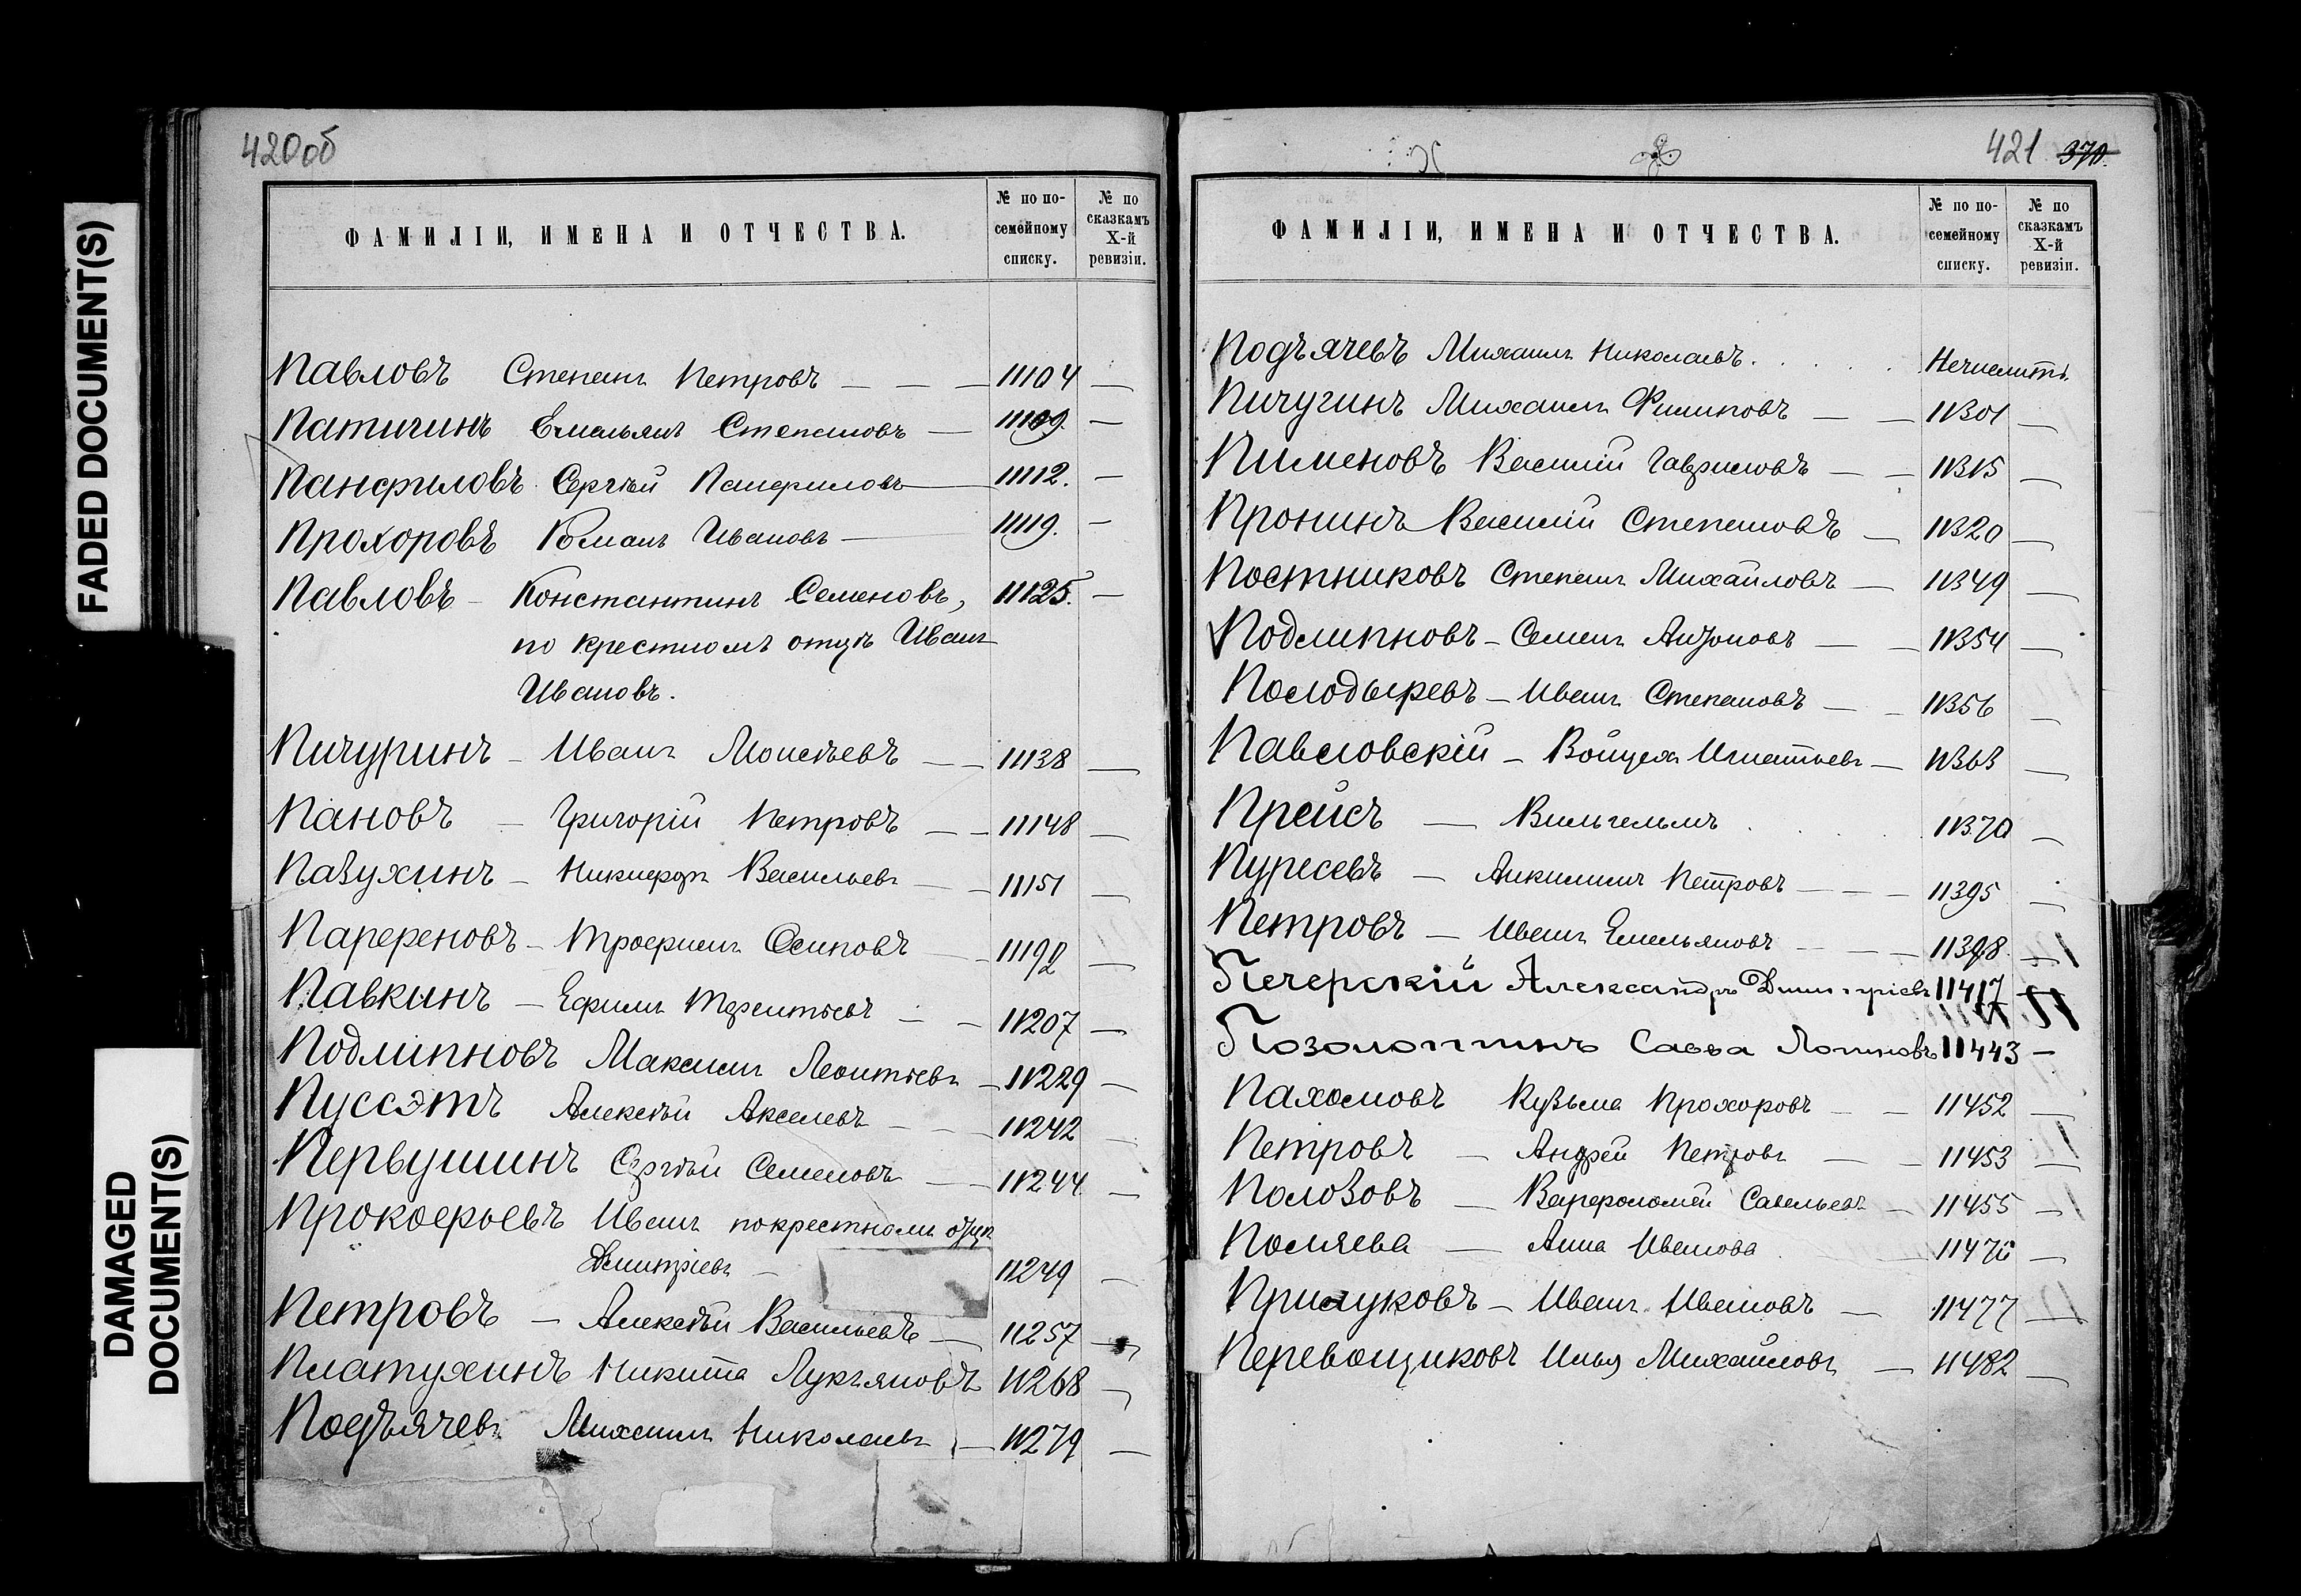 FADED DOCUMENT(S)
DAMAGED
DOCUMENT(S)
420об
ФАМИЛІИ, ИМЕНА И ОТЧЕСТВА.
№ по по-
семейному
списку.
№ по
сказкамъ
X-й
ревизіи.
Павловъ Степанъ Петровъ — — — 11104 —
Патигинъ Емельянъ Степановъ — 11109. —
Панфиловъ Сергѣй Панфиловъ — 11112. —
Прохоровъ Романъ Ивановъ — 11119. —
Павловъ — Константинъ Семеновъ, 11125. —
по крестномъ отцѣ Иванъ
Ивановъ.
Пичуринъ — Иванъ Моисѣевъ — — 11138 —
Пановъ — Григорій Петровъ — — 11148 —
Пазухинъ — Никифоръ Васильевъ — — 11151 —
Парфеновъ — Трофимъ Осиповъ — — 11192 —
Павкинъ — Ефимъ Терентьевъ — — 11207 —
Подлипновъ Максимъ Леонтьевъ — 11229 —
Пуссэтъ Алексѣй Акселевъ — — 11242 —
Первушинъ Сергѣй Семеновъ — — 11244 —
Прокофьевъ Иванъ по крестномъ отцѣ
Дмитріевъ — 11249 —
Петровъ — Алексѣй Васильевъ — 11257 —
Платухинъ Никита Лукьяновъ 11268 —
Подъячевъ Михаилъ Николаевъ — 11279 —
421 370.
ФАМИЛІИ, ИМЕНА И ОТЧЕСТВА.
№ по по-
семейному
списку.
№ по
сказкамъ
X-й
ревизіи.
Подъячевъ Михаилъ Николаевъ . . . .
Пичугинъ Михаилъ Филиповъ — — 11301 —
Пименовъ Василій Гавриловъ — — 11315 —
Пронинъ Василій Степановъ — 11320 —
Постниковъ Степанъ Михайловъ — 11349 —
Подлипновъ — Семенъ Антоновъ — — 11354 —
Полодыревъ — Иванъ Степановъ — — 11356 —
Павловскій — Войцехъ Игнатьевъ — 11363 —
Прейсъ — Вильгельмъ . . . . 11370 —
Пуресевъ — Петровъ — — — 11395 —
Петровъ — Иванъ Емельяновъ — — — 11398 —
Печерскій Александръ Дмитріевъ 11417 —
Позолотинъ Савва Логиновъ 11443 —
Пахомовъ Кузьма Прохоровъ — — 11452 —
Петровъ — Андрей Петровъ — — 11453 —
Полозовъ — Варфоломей Савельевъ — 11455 —
Поляева — Анна Иванова 11476 —
Прилуковъ — Иванъ Ивановъ — 11477 —
Перевощиковъ Илья Михайловъ — 11482 —